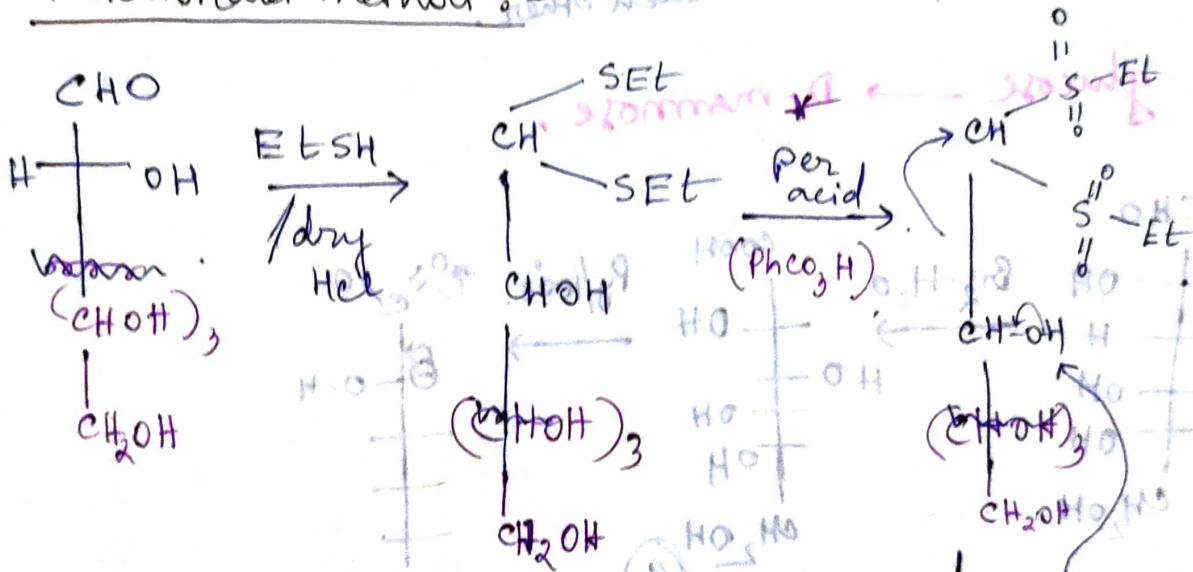 method :
CHO
H OH
(CHOH)3
CH2OH
EtSH
/dry
HCl
SEt
CH
SEt
CHOH
(CHOH)3
CH2OH
*
per
acid
(PhCO3H)
O
S-Et
O
CH
O
S-Et
O
CH-OH
(CHOH)3
CH2OH